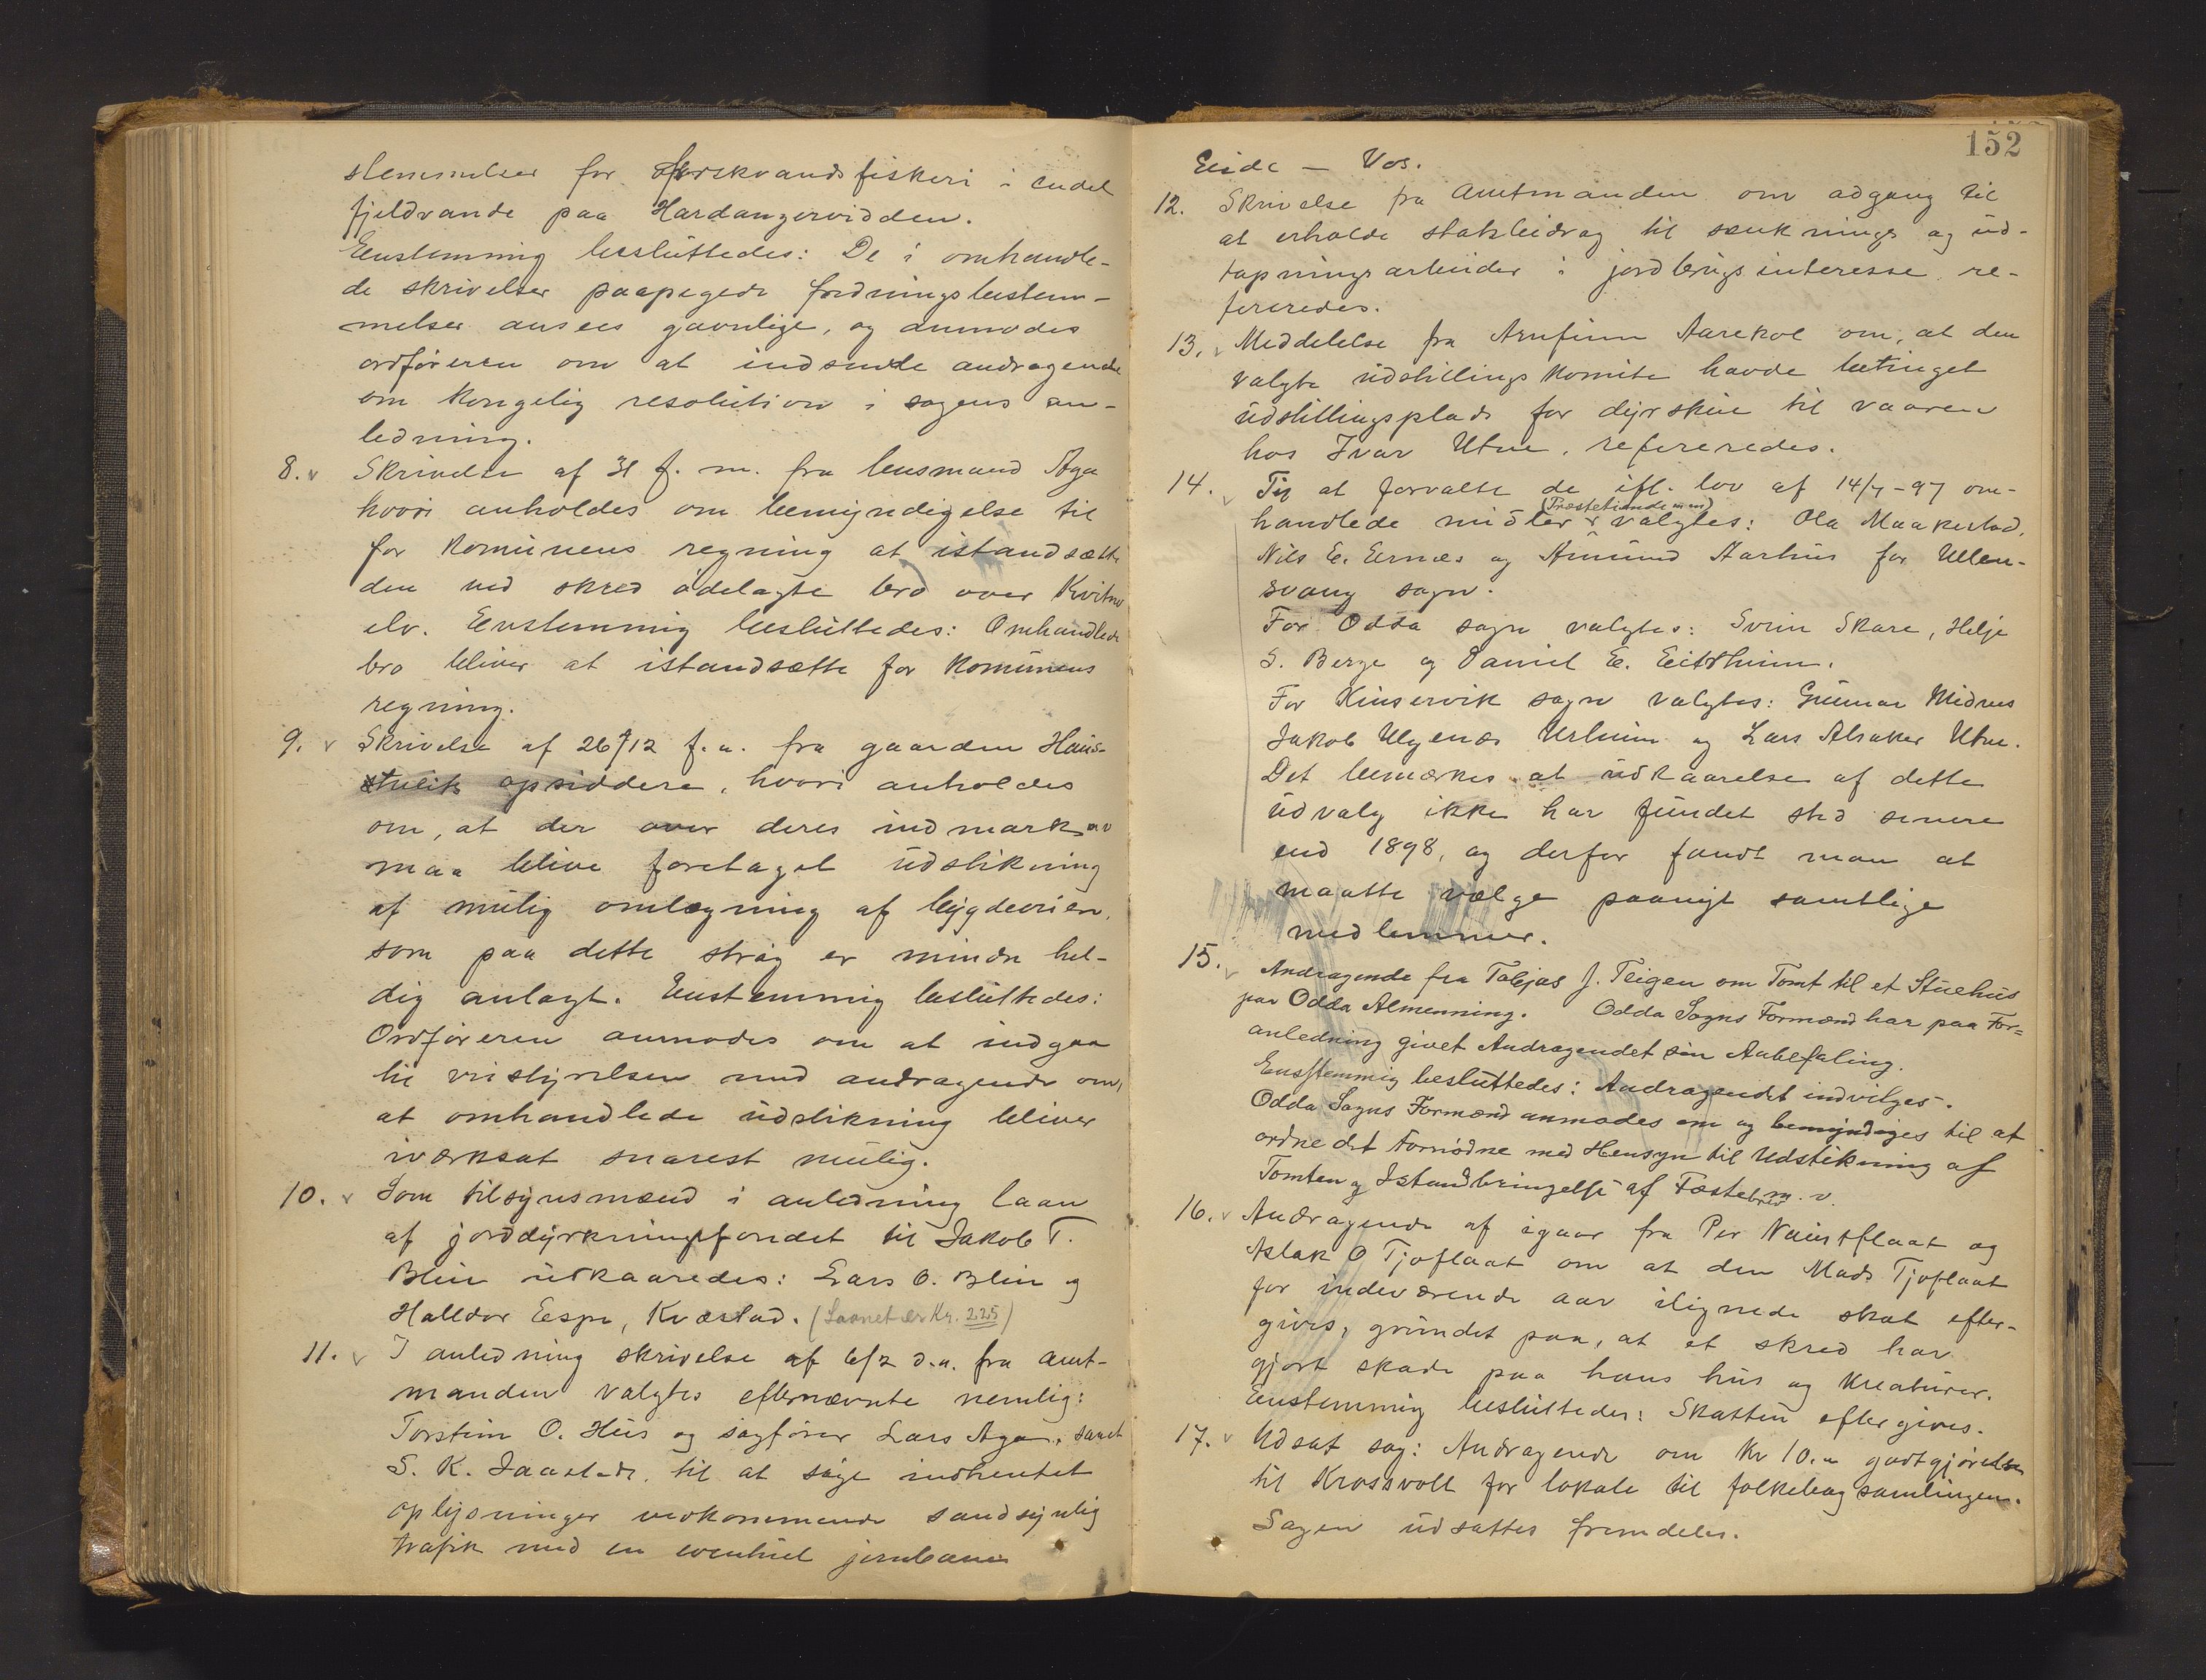 stemmelser for ferskvandsfiskeri i endel
fjeldvande paa Hardangervidden.
Eenstemmig besluttedes: De i omhandle-
de skrivelser paapegede fredningsbestem-
melser ansees gavnlige, og anmodes
ordføreren om at indsende andragende
om kongelig resolution i sagens an-
ledning.
8. v Skrivelse af 31 f. m. fra lensmand Aga
hvori anholdes om bemyndigelse til
for komunens regning at istandsætte
den ved skred ødelagte bro over Kvitne
elv. Eenstemmig besluttedes: Omhandlede
bro bliver at istandsætte for komunens
regning.
9. v Skrivelse af 26/12 f. a. fra gaarden Haus-
opsiddere, hvori anholdes
om, at der over deres indmark
maa blive foretaget udstikning
af mulig omlægning af bygdeveien,
som paa dette strøg er mindre hel-
dig anlagt. Eenstemmig besluttedes:
Ordføreren anmodes om at indgaa
til veistyrelsen med andragende om,
at omhandlede udstikning bliver
iværksat snarest mulig.
10. v Som tilsynsmænd i anledning laan
af jorddyrkningsfondet til Jakob T.
Blie udkaaredes: Lars O. Blie og
Halldor Espe, Kvæstad. (Laanet er Kr. 225)
11. v I anledning skrivelse af 6/2 d. a. fra amt-
manden valgtes efternævnte nemlig:
Torstein O. Hus og sagfører Lars Aga, samt
S. K. Jaastad, til at søge indhentet
oplysninger vedkommende sandsynlig
trafik med en eventuel jernbane
152
Eide - Vos.
12. Skrivelse fra amtmanden om adgang til
at erholde statsbidrag til sænknings og ud-
tapningsarbeider i jordbrugsinteresse re-
fereredes.
13. v Meddelelse fra Arnfinn Aarekol om, at den
valgte udstillings komite havde betinget
udstillingsplads for dyrskue til vaaren
hos Ivar Utne, refereredes.
14. v Til at forvalte de ifl. lov af 14/7-97 om-
(Præstetiende m m)
handlede midler valgtes: Ola Maakestad,
Nils E. Ernæs og Amund Aarhus for Ullen-
svang sogn.
For Odda sogn valgtes: Svein Skare, Helje
S. Berge og Daniel E. Eitrheim.
For Kinservik sogn valgtes: Gunnar Midnes
Jakob Ulgenæs Urheim og Lars Alsaker Utne.
Det bemærkes at udkaarelse af dette
udvalg ikke har fundet sted senere
end 1898, og derfor fandt man at
maatte vælge paanyt samtlige
medlemmer.
15. v Andragende fra Tolejas J. Teigen om Tomt til et Stuehus
paa Odda Almenning. Odda Sogns Formænd har paa For=
anledning givet Andragendet sin Anbefaling.
Eensstemmig besluttedes: Andragendet indvilges.
Odda Sogns Formænd anmodes om og bemyndiges til at
ordne det Fornødne med Hensyn til Udstikning af
Tomten og Istandbringelse af Fæstebrev m. v.
16. v Andragende af igaar fra Per Naustflaat og
Aslak O Tjoflaat om at den Mads Tjoflaat
for indeværende aar ilignede skat efter-
gives, grundet paa, at et skred har
gjort skade paa hans hus og kreaturer.
Eenstemmig besluttedes: Skatten eftergives.
17. v Udsat sag: Andragende om Kr 10.- godtgjørelse
til Krossvoll for lokale til folkebogsamlingen.
Sagen udsattes fremdeles.